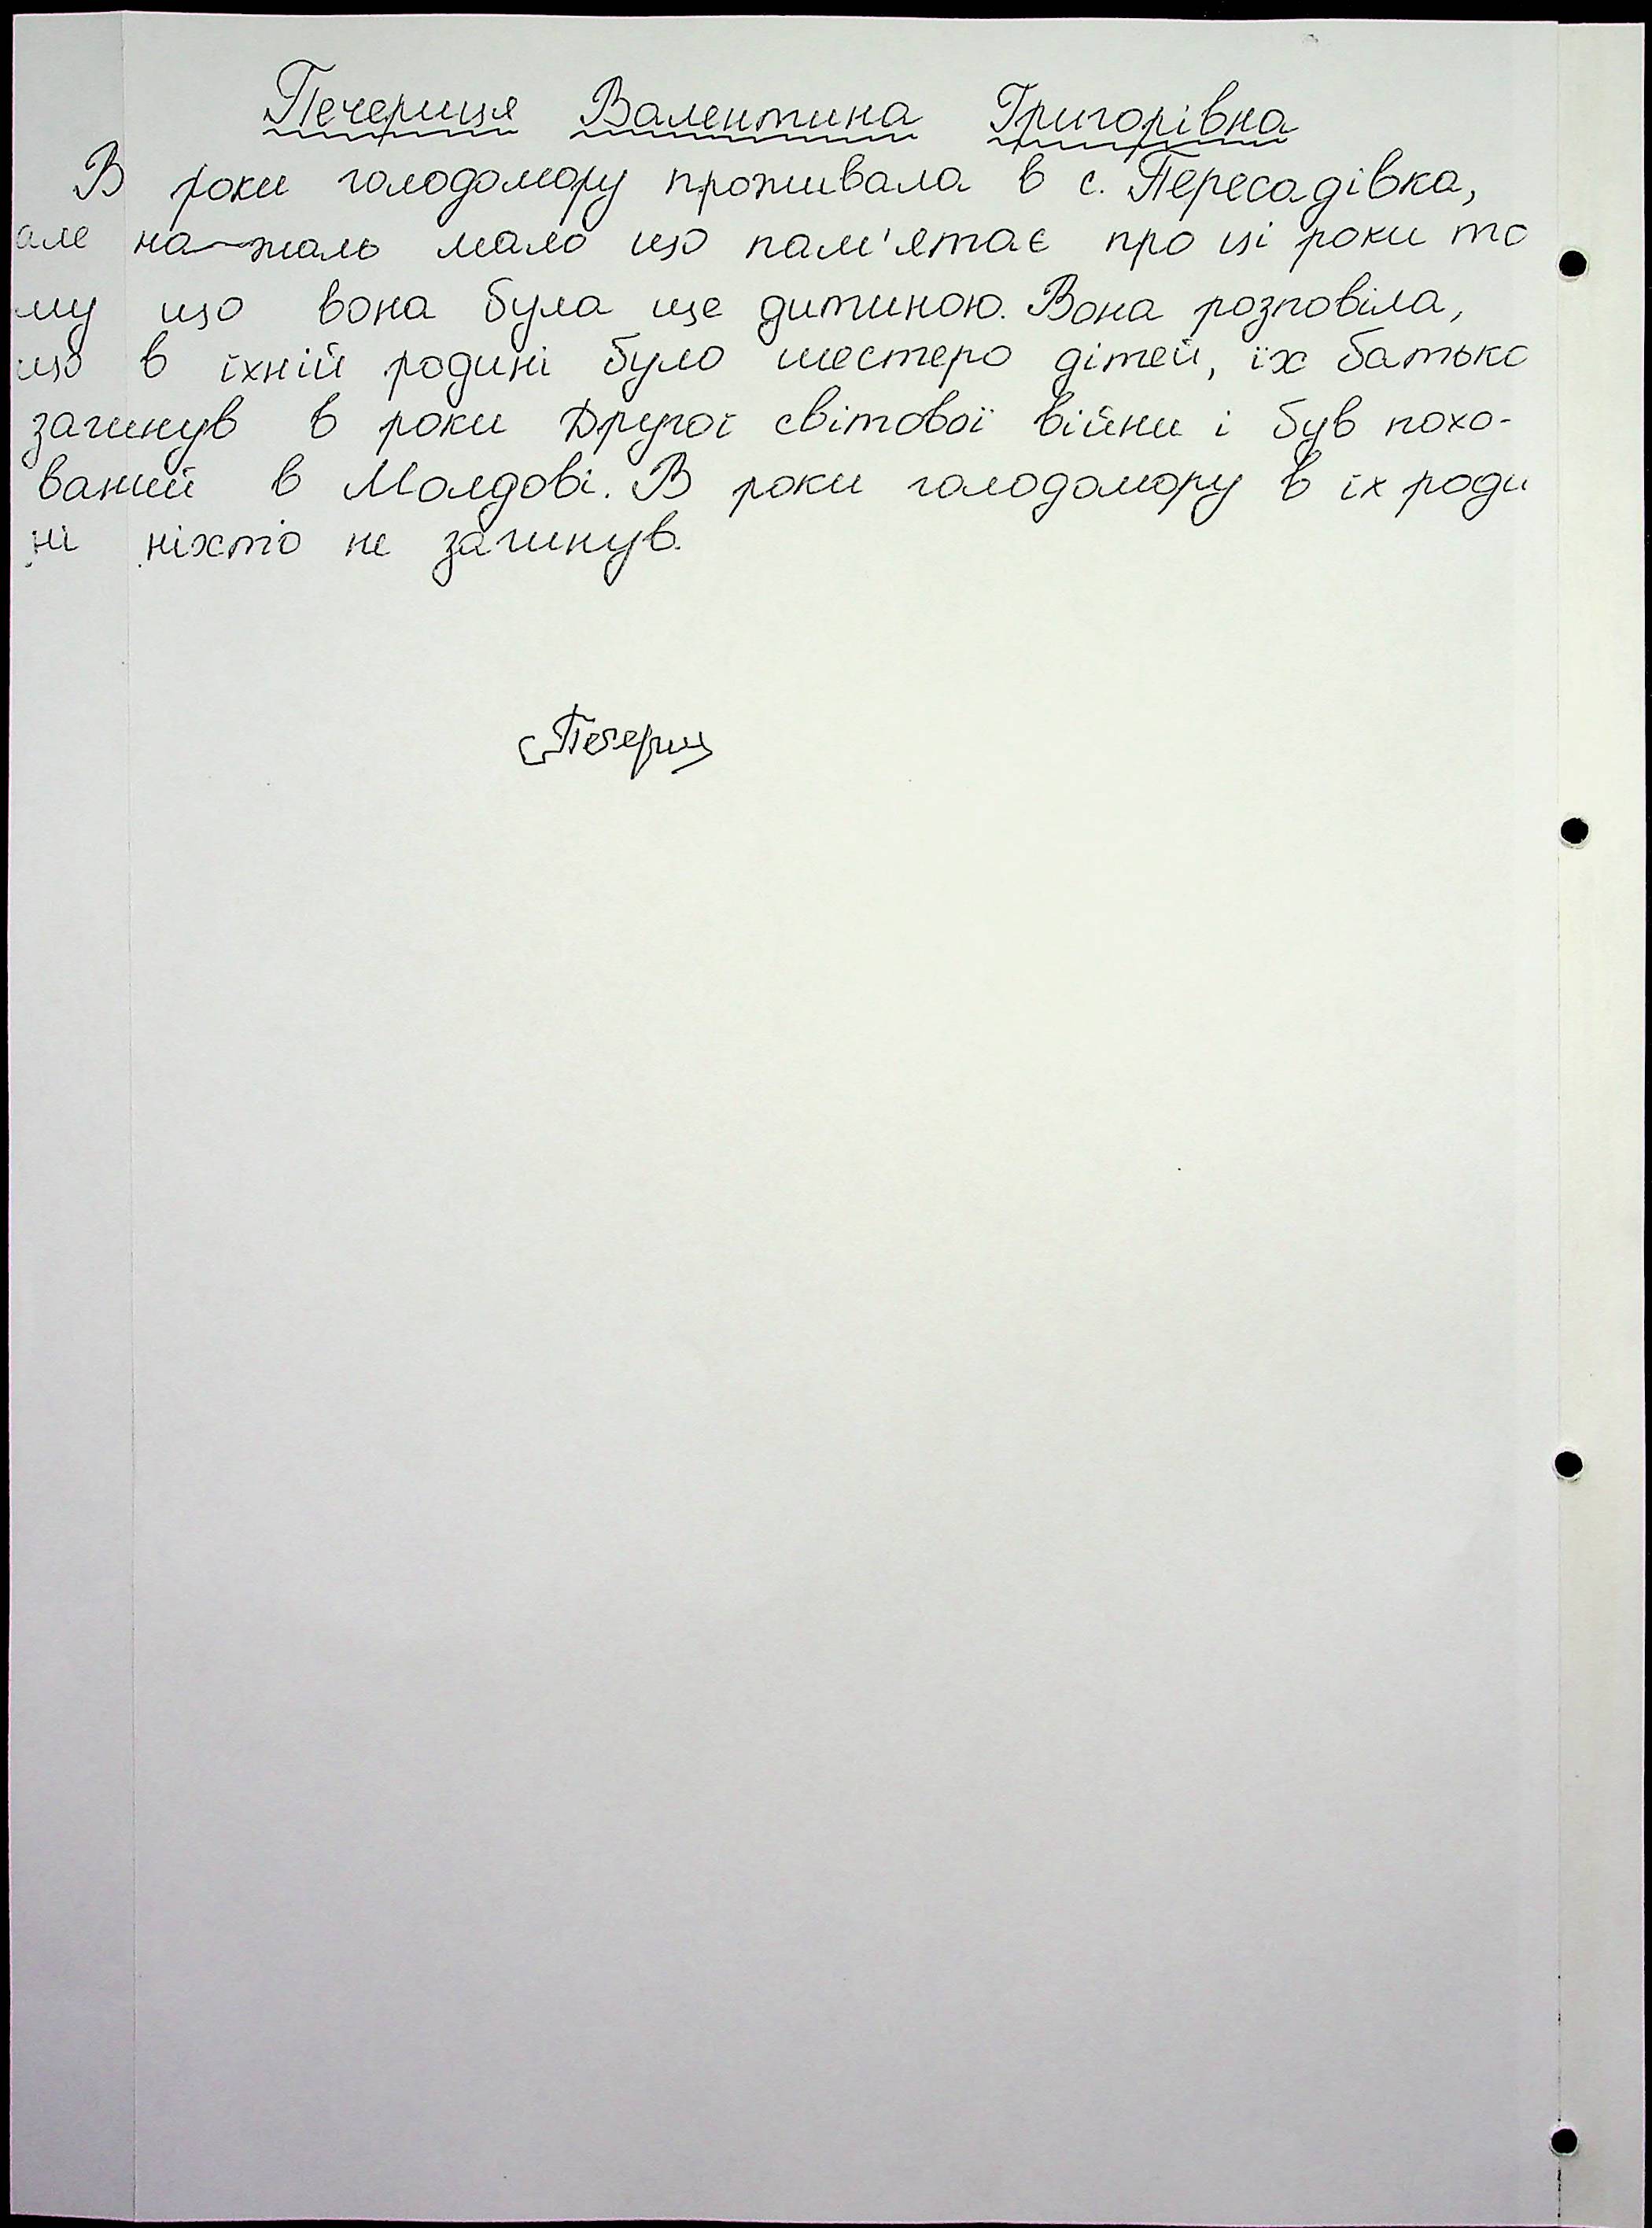 Печериця Валентина Григорівна
В роки голодомору проживала в с. Пересадівка,
але на жаль мало що пам'ятає про ці роки то
му що вона була ще дитиною. Вона розповіла,
що в їхній родині було шестеро дітей, їх батько
загинув в роки Другої світової війни і був похо-
ваний в Молдові. В роки голодомору в їх роди
ні ніхто не загинув.
Печериц